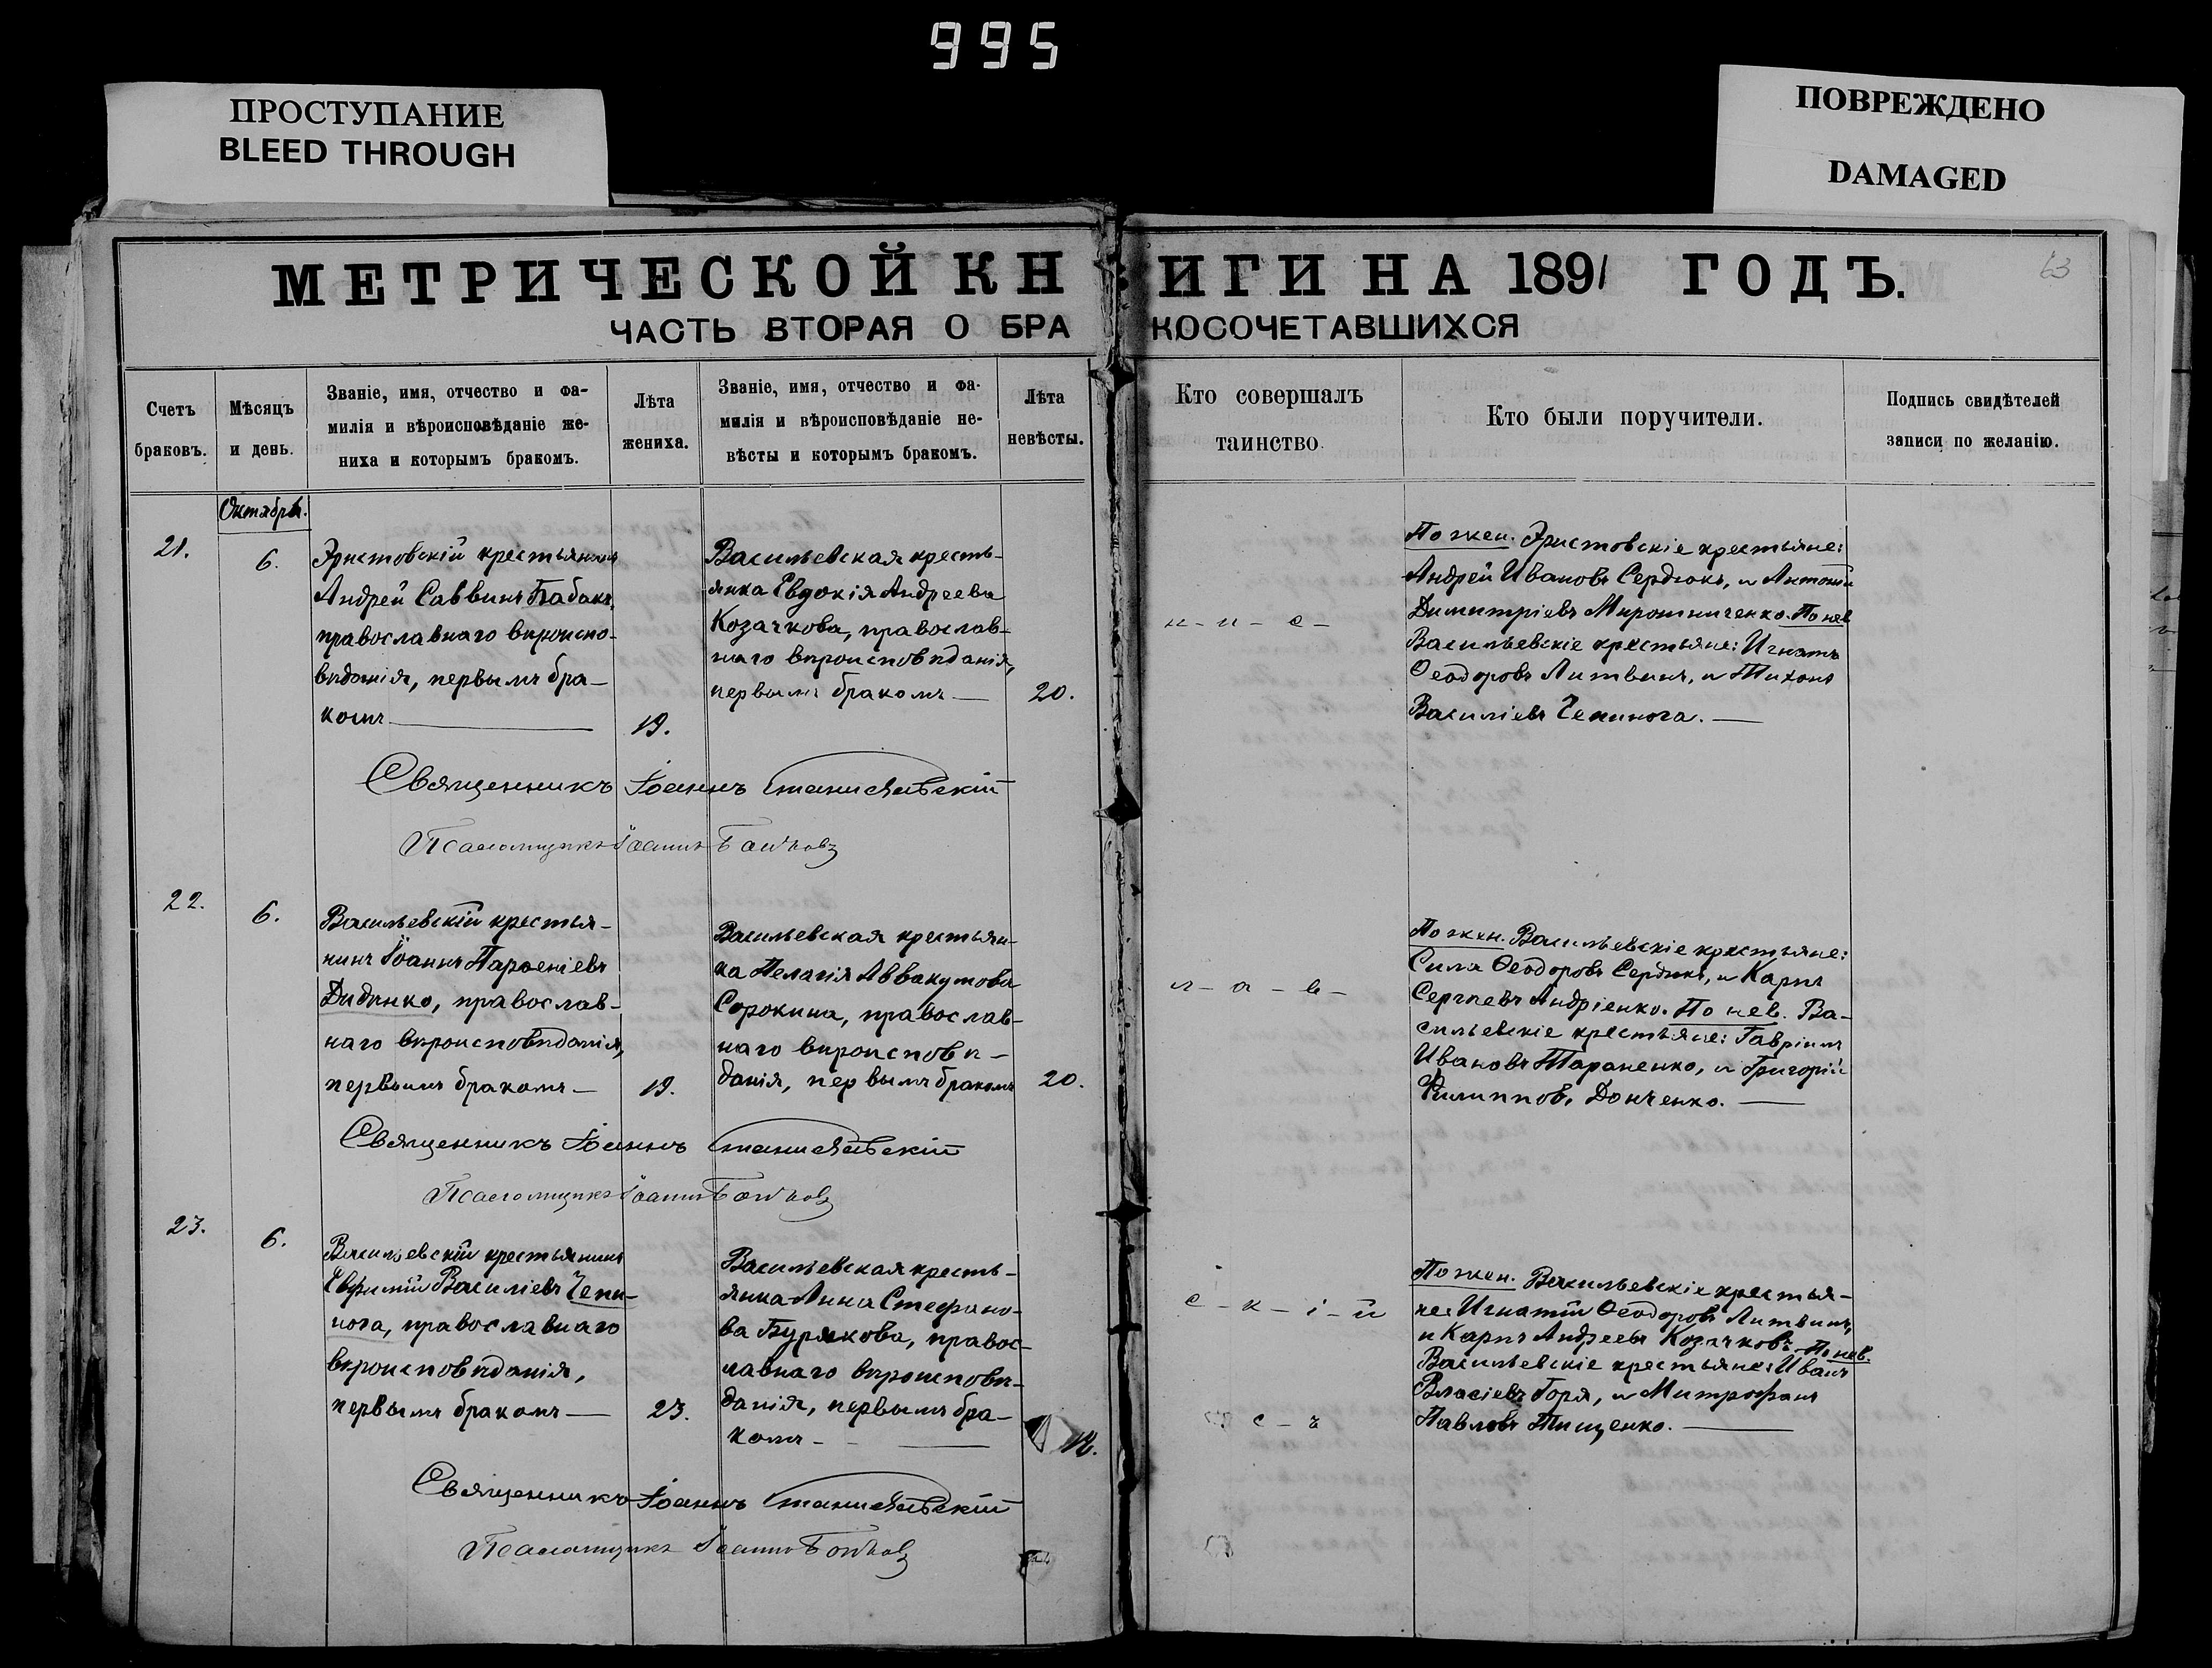 995
ПРОСТУПАНИЕ
BLEED THROUGH
ПОВРЕЖДЕНО
DAMAGED
МЕТРИЧЕСКОЙ КНИГИ НА 1891 ГОДЪ.
63
ЧАСТЬ ВТОРАЯ О БРАКОСОЧЕТАВШИХСЯ
Счетъ
браковъ.
Мѣсяцъ
и день.
Званіе, имя, отчество и фа-
милія и вѣроисповѣданіе же-
ниха и которымъ бракомъ.
Лѣта
жениха.
Званіе, имя, отчество и фа-
милія и вѣроисповѣданіе не-
вѣсты и которымъ бракомъ.
Лѣта
невѣсты.
Кто совершалъ
таинство.
Кто были поручители.
Подпись свидѣтелей
записи по желанію.
Октябрь.
21.
6.
Эристовскій крестьянинъ
Андрей Саввинъ Бабакъ,
православнаго вѣроиспо-
вѣданія, первымъ бра-
комъ
19.
Васильевская кресть-
янка Евдокія Андреева
Козачкова, православ-
наго вѣроисповѣданія,
первымъ бракомъ
20.
н - и - с -
По жен. Эристовскіе крестьяне:
Андрей Ивановъ Сердюкъ, и Антоній
Димитріевъ Мирошниченко. По нев
Васильевскіе крестьяне: Игнатъ
Ѳеодоровъ Литвинъ, и Тихонъ
Василіевъ Чепинога.
Священникъ Іоаннъ Станиславскій
Псаломщикъ Іоаннъ
22.
6.
Васильевскій крестья-
нинъ Іоаннъ Парѳеніевъ
Диденко, православ-
наго вѣроисповѣданія,
первымъ бракомъ
19.
Васильевская крестьян-
ка Пелагія Аввакумова
Сорокина, православ-
наго вѣроисповѣ-
данія, первымъ бракомъ
20.
л - а - в -
По жен. Васильевскіе крестьяне:
Сила Ѳеодоровъ Сердюкъ, и Карпъ
Сергѣевъ Андріенко. По нев. Ва-
сильевскіе крестьяне: Гавріилъ
Ивановъ Тараненко, и Григорій
Филипповъ Донченко.
Священникъ Іоаннъ Станиславскій
Псаломщикъ Іоаннъ
23.
6.
Васильевскій крестьянинъ
Евфимій Василіевъ Чепи-
нога, православнаго
вѣроисповѣданія,
первымъ бракомъ
23.
Васильевская кресть-
янка Анна Стефано-
ва Бурякова, правос-
лавнаго вѣроисповѣ-
данія, первымъ бра-
комъ
с - к - і - й
с - ъ
По жен. Васильевскіе крестья-
не: Игнатій Ѳеодоровъ Литвинъ,
и Карпъ Андреевъ Козачковъ. По нев.
Васильевскіе крестьяне: Иванъ
Власіевъ Горя, и Митрофанъ
Павловъ Тищенко.
Священникъ Іоаннъ Станиславскій
Псаломщикъ Іоаннъ